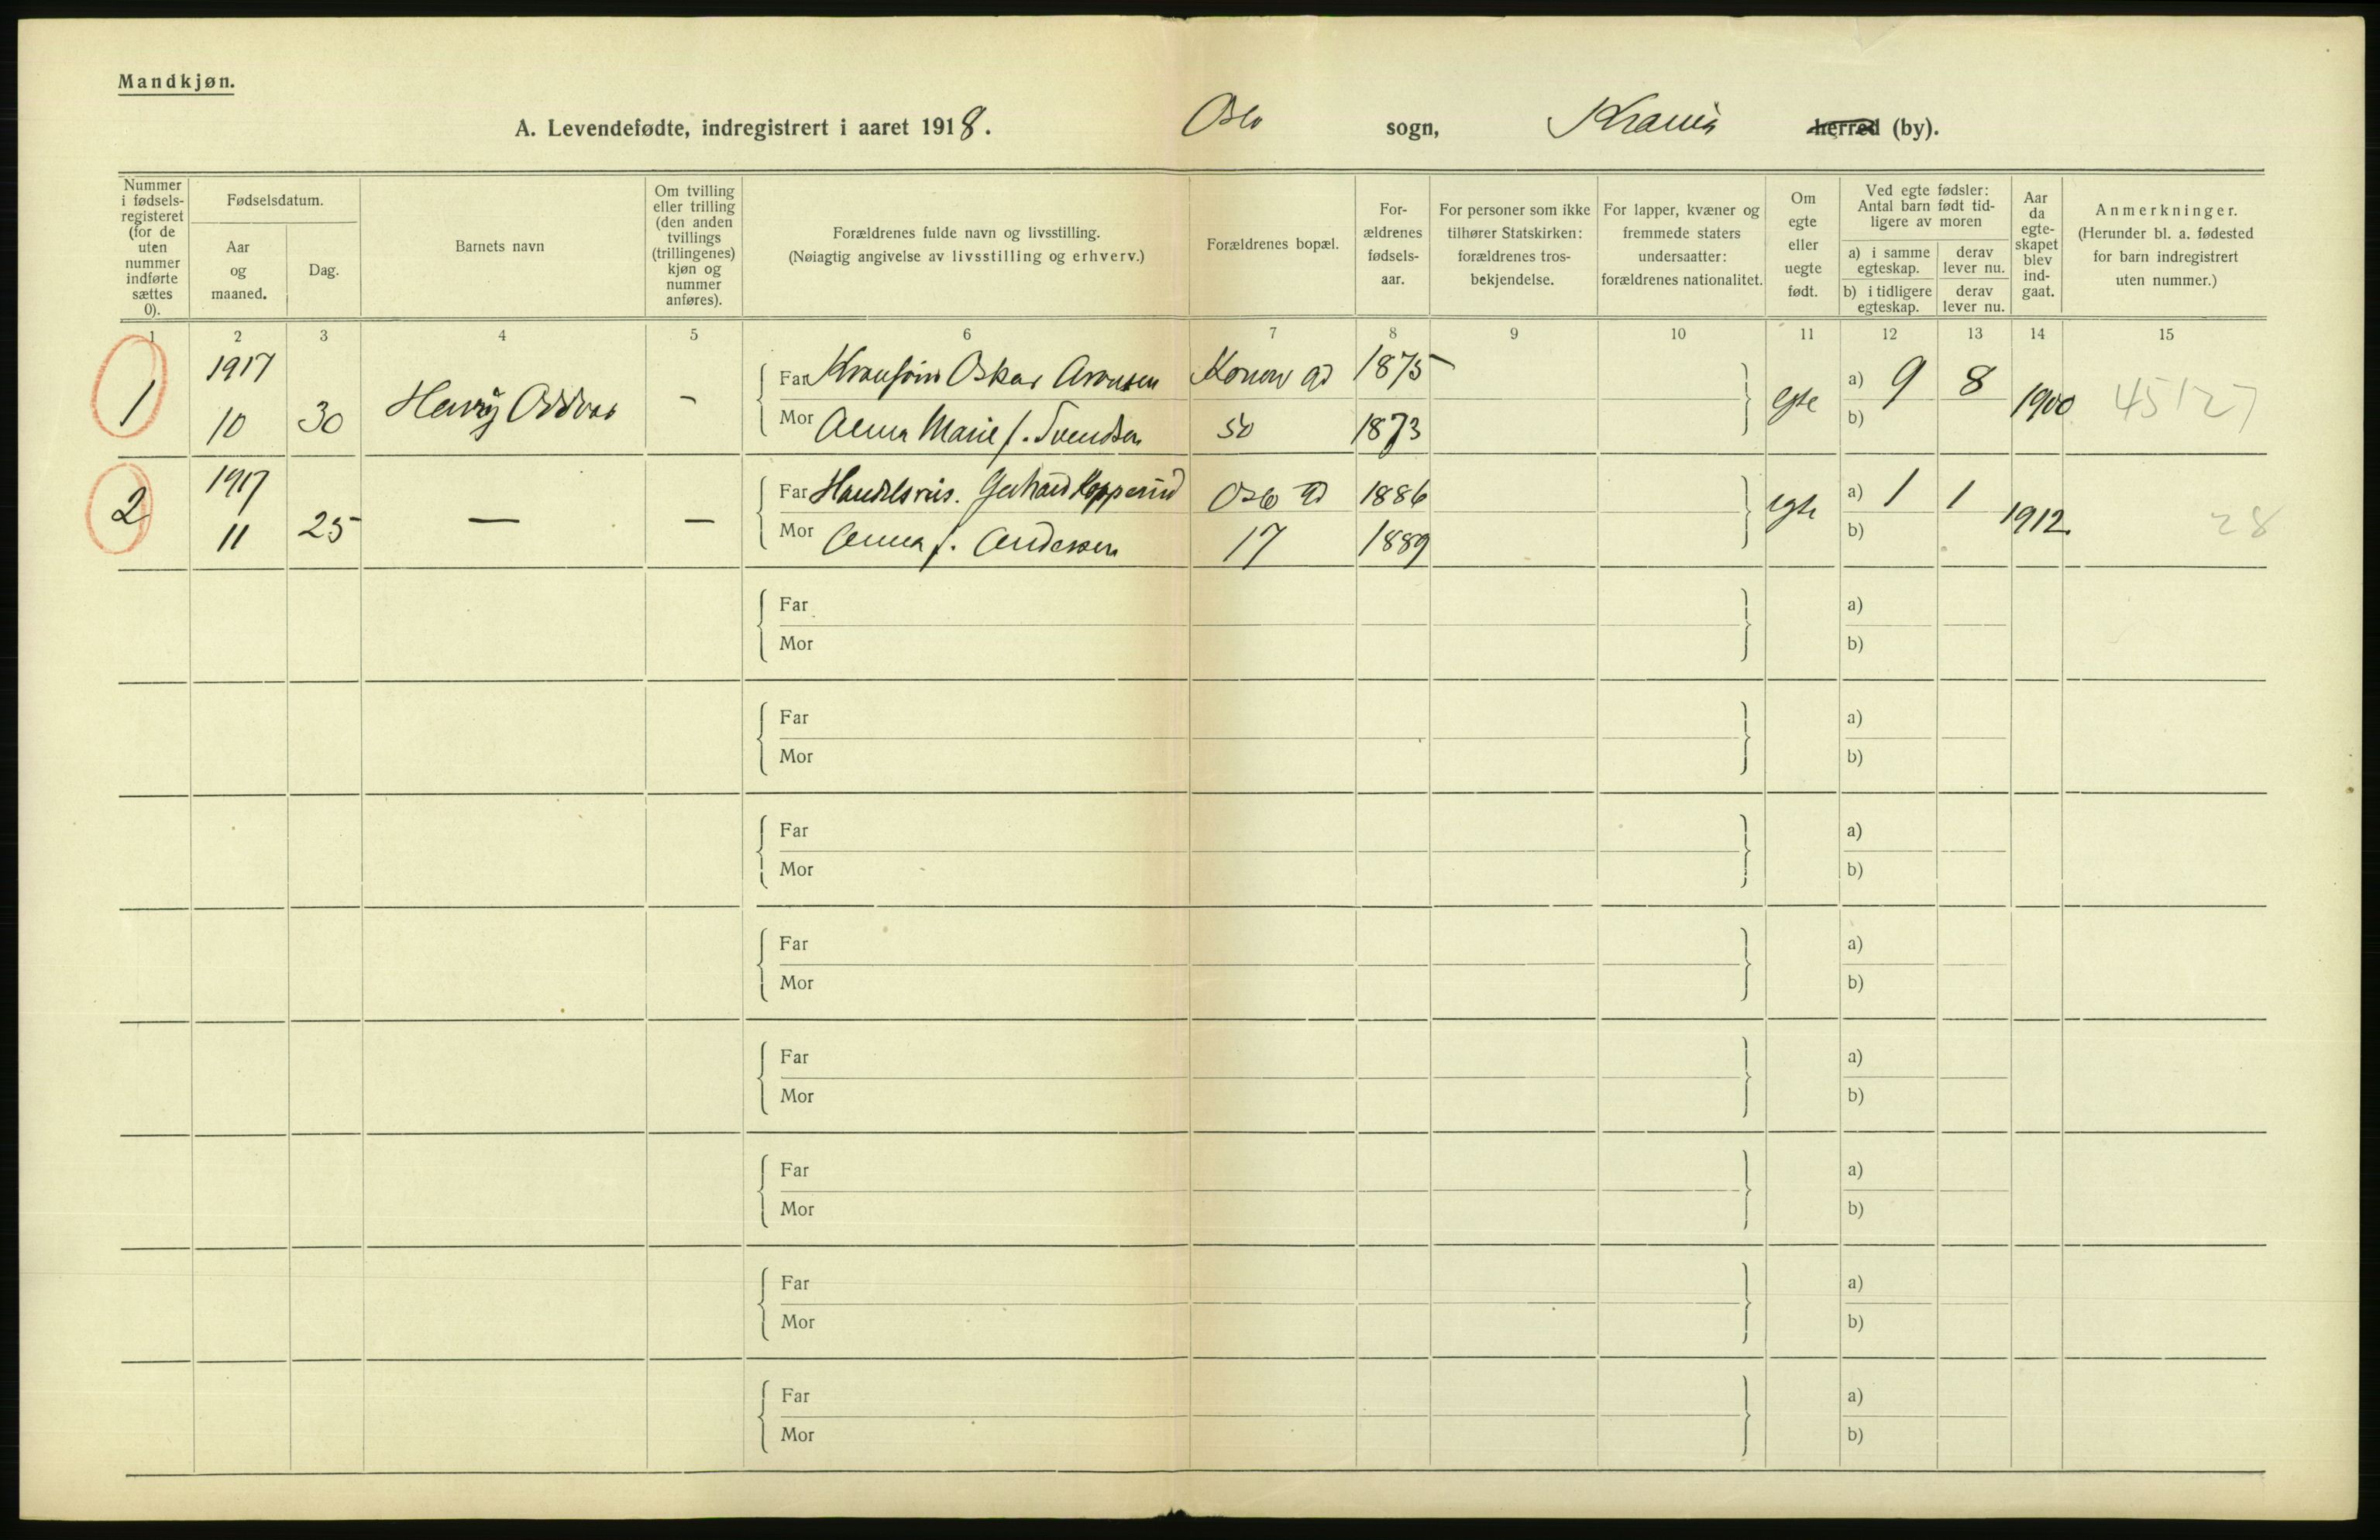 Mandkjøn.
A. Levendefødte, indregistrert i aaret 1918. Oslo sogn, Krania herred (by).
Nummer i fødsels-registeret (for de uten nummer indførte sættes 0).
Fødselsdatum.
Aar og maaned.
Dag.
Barnets navn
Om tvilling eller trilling (den anden tvillings (trillingenes) kjøn og nummer anføres).
Forældrenes fulde navn og livsstilling.
(Nøiagtig angivelse av livsstilling og erhverv.)
Forældrenes bopæl.
For-ældrenes fødsels-aar.
For personer som ikke tilhører Statskirken: forældrenes tros-bekjendelse.
For lapper, kvæner og fremmede staters undersaatter: forældrenes nationalitet.
Om egte eller uegte født.
Ved egte fødsler: Antal barn født tid-ligere av moren
a) i samme egteskap.
derav lever nu.
b) i tidligere egteskap.
derav lever nu.
Aar da egte-skapet blev ind-gaat.
Anmerkninger.
(Herunder bl. a. fødested for barn indregistrert uten nummer.)
1 2 3 4 5 6 7 8 9 10 11 12 13 14 15
1 1917 10 30 Henry Oddvar -
Far Oskar Aronsen Konow gd 1875
Mor Anna Marie f. Svendsen 50 1873
egte a) 9 8 b) 1900 45127
2 1917 11 25 — —
Far Handelsreis. Gerhard Kopperud Oslo gd 1886
Mor Anna f. Andersen 17 1889
egte a) 1 1 b) 1912 28
Far a)
Mor b)
Far a)
Mor b)
Far a)
Mor b)
Far a)
Mor b)
Far a)
Mor b)
Far a)
Mor b)
Far a)
Mor b)
Far a)
Mor b)